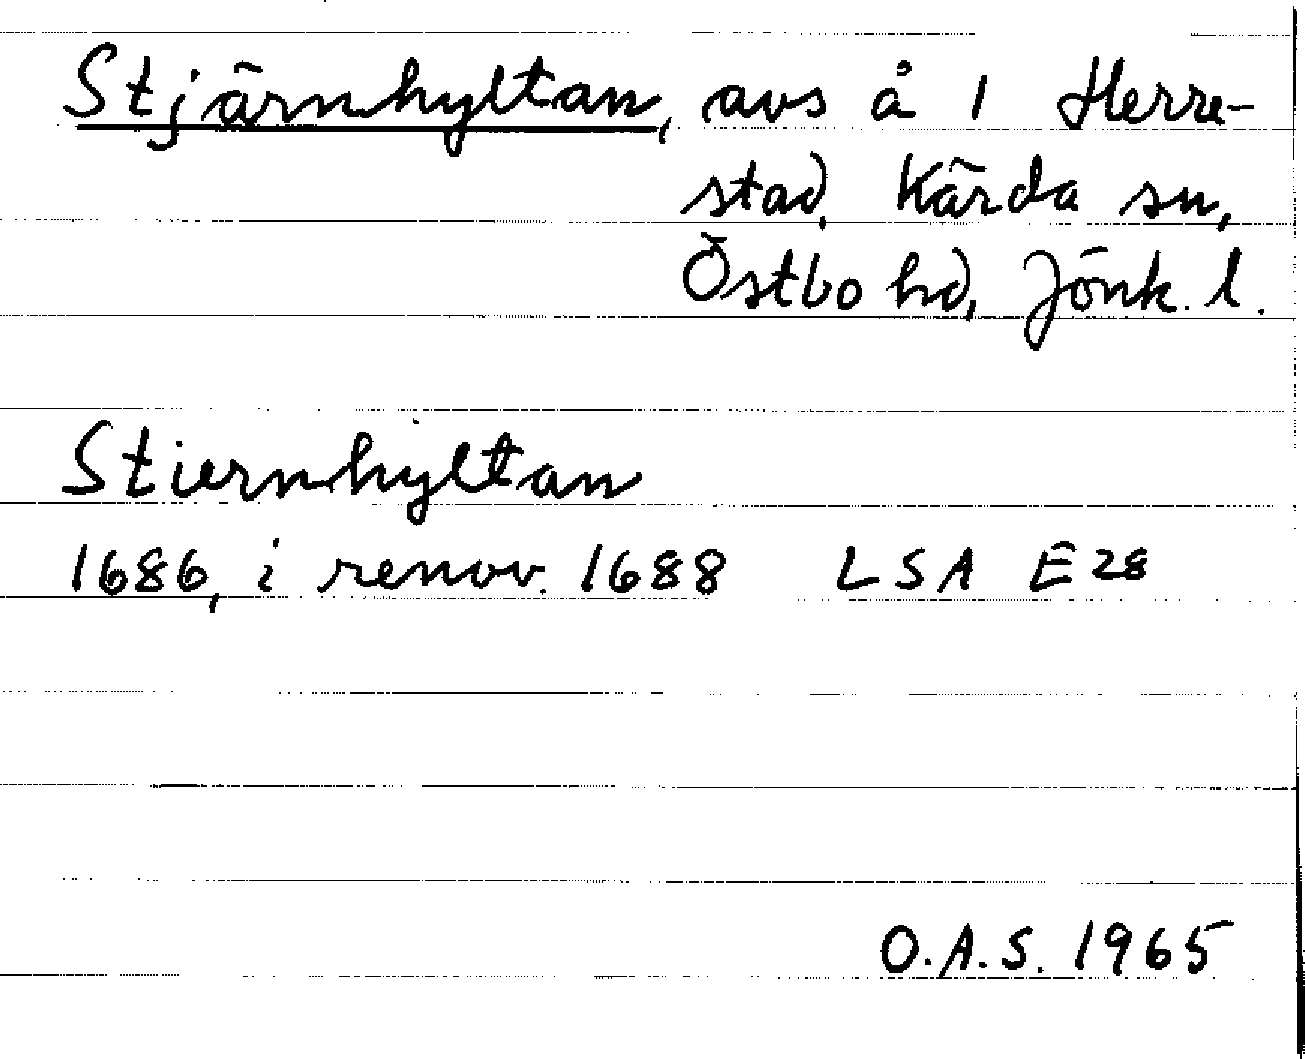 Stjärnhyltan, avs å 1 Herre-
stad, Kärda sn,
Östbo hd, Jönk. l.
Stiernhyltan
1686, i renov. 1688 LSA E28
O.A.S. 1965